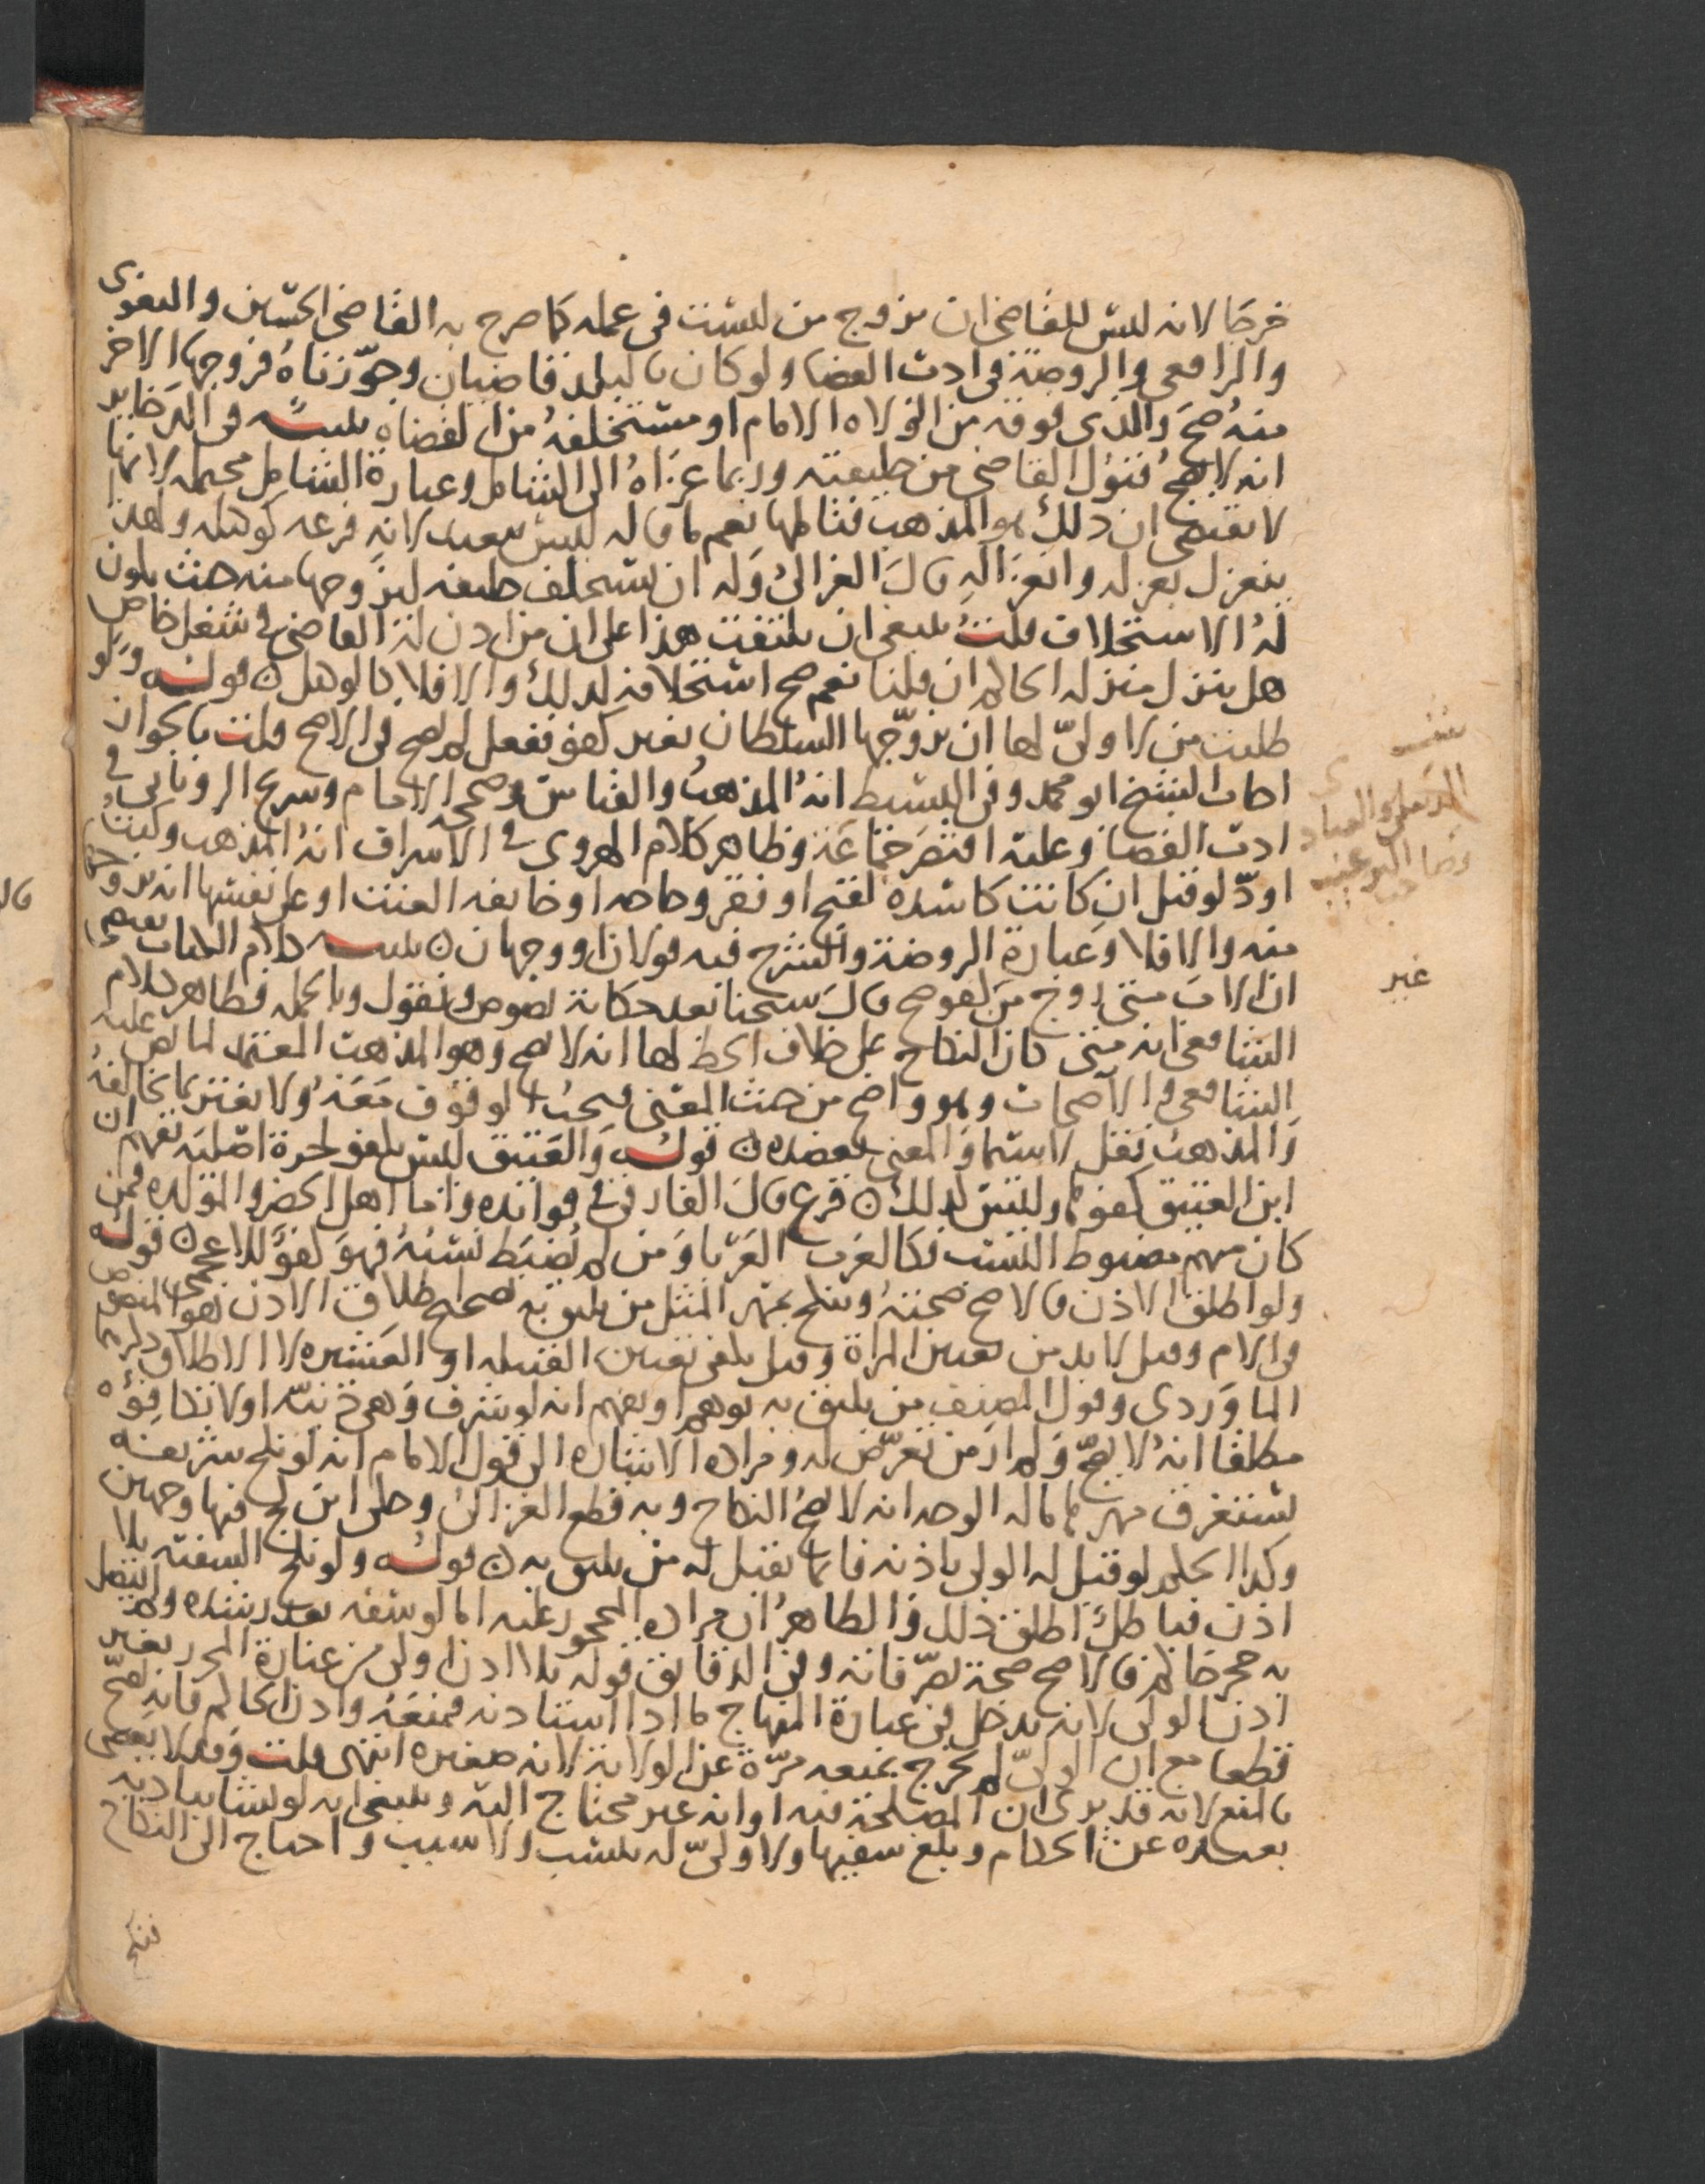 خرجا لانه ليس للقاضي ان يزوج من ليست في عمله كما صرح به القاضي الحسين والبغوي
والرافعي والروضة في ادب القضا ولو كان بالبلد قاضيان وجوّزناه فزوجها الاخر
منه صح والذي فوقه من الولاه الامام او مستخلفه من القضاه تنبيه في الدخاير
انه لا يصح قبول القاضي من خليفته وربما عزاه الى الشامل وعبارة الشامل محتمله لانها
لا تقتضي ان ذلك هو المذهب فتاملها نعم ما قاله ليس ببعيد لانه فرعه كوكيله ولهذا
ينعزل بعزله وانعزاله قال الغزالي وله ان يستخلف خليفه ليزوجها منه حيث يكون
له الاستخلاف قلت ينبغي ان يلتفت هذا على ان من اذن له القاضي في شغل خاص
هل ينزل منزله الحاكم ان قلنا نعم صح استخلافه لذلك والا فلا كما لو هل قوله ولو
طلبت من لا ولي لها ان يزوّجها السلطان بغير كفو ففعل لم يصح في الاصح قلت بالجواز
اجاب الشيخ ابو محمد وفي البسيط انه المذهب والقياس وصححه الامام وسريج الروياني في
ادب القضا وعليه اقتصر جماعة وظاهر كلام الهروي في الاشراف انه المذهب وكنت
اودّ لو قيل ان كانت كاسده لقبح او فقر وحاجه او خايفه العنت او على نفسها انه يزوجها
منه والا فلا وعبارة الروضة والشرح فيه قولان او وجهان تنبيه كلام الكتاب يقتضي
ان الاب متى زوج من كفو صح قال شيخنا بعد حكاية نصوص ونقول وبالجمله فظاهر كلام
الشافعي انه متى كان النكاح على خلاف الحظ لها انه لا يصح وهو المذهب المعتمد لما نص عليه
الشافعي والاصحاب وهو واضح من حيث المعنى فيجب الوقوف معه ولا يغتر بما يخالفه
والمذهب نقل لا سيما والمعنى يعضده قوله والعتيق ليس بكفو لحرة اصليه يفهم ان
ابن العتيق كفو لها وليس كذلك فرع قال الفارقي في فوائده واما اهل الحضر والمولده فمن
كان منهم مضبوط النسب فكالعرب العربا ومن لم يضبط نسبه فهو كفو للاعجمي قوله
ولو اطلق الاذن فالاصح صحته وينكح بمهر المثل من يليق به لصحة اطلاق الاذن هو المنصوص
في الام وقيل لا بد من تعيين المراة وقيل يكفي تعيين القبيله او العشيره لا الاطلاق ذكره
الماوردي وقول المصنف من يليق به يوهم او يفهم انه لو شرف وهي دنيه او لا تكافئه
مطلقا انه لا يصح ولم ار من تعرّض له ومراده الاشاره الى قول الامام انه لو نكح شريفه
يستغرق مهر مثلها ماله الوجه انه لا يصح النكاح وبه قطع الغزالي وحكى ابن كج فيها وجهين
وكذا الحكم لو قبل له الولي باذنه فانما يقبل له من يليق به قوله ولو نكح السفيه بلا
اذن فباطل اطلق ذلك والظاهر ان مراده المحجور عليه اما لو سفه بعد رشده ولم يتصل
به حجر حاكم فالاصح صحة تصرفاته وفي الدقايق قوله بلا اذن اولى من عبارة المحرر بغير
اذن الولي لانه يدخل في عبارة المنهاج ما اذا استاذنه فمنعه واذن الحاكم فانه يصح
قطعا مع ان الولي لم يخرج بمنعه مرّة عن الولاية لانه صغيره انتهى قلت وقد لا يعصي
بالمنع لانه قد يرى ان المصلحة فيه او انه غير محتاج اليه وينبغي انه لو نشا ببادية
بعيده عن الحكام وبلغ سفيها ولا وليّ له بنسب ولا سبب واحتاج الى النكاح
فنكح
غير